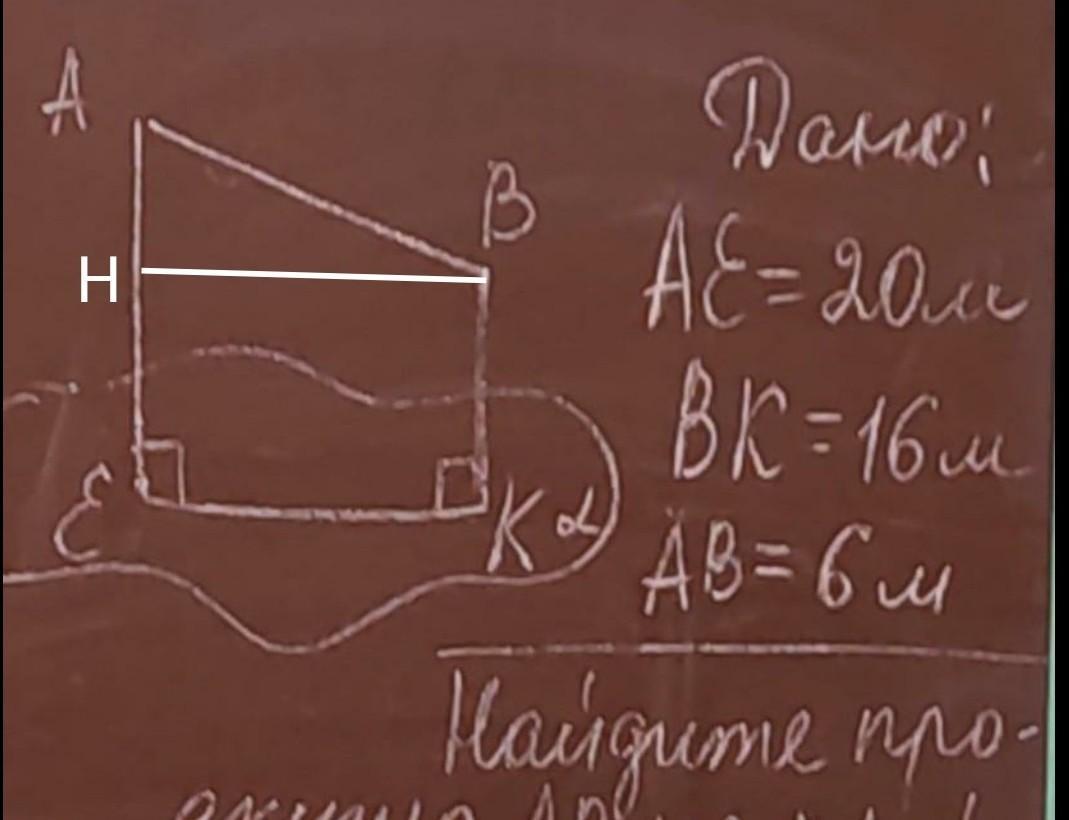 A
B
H
E
K α
Дано:
AE = 20м
BK = 16м
AB = 6 м
Найдите про-